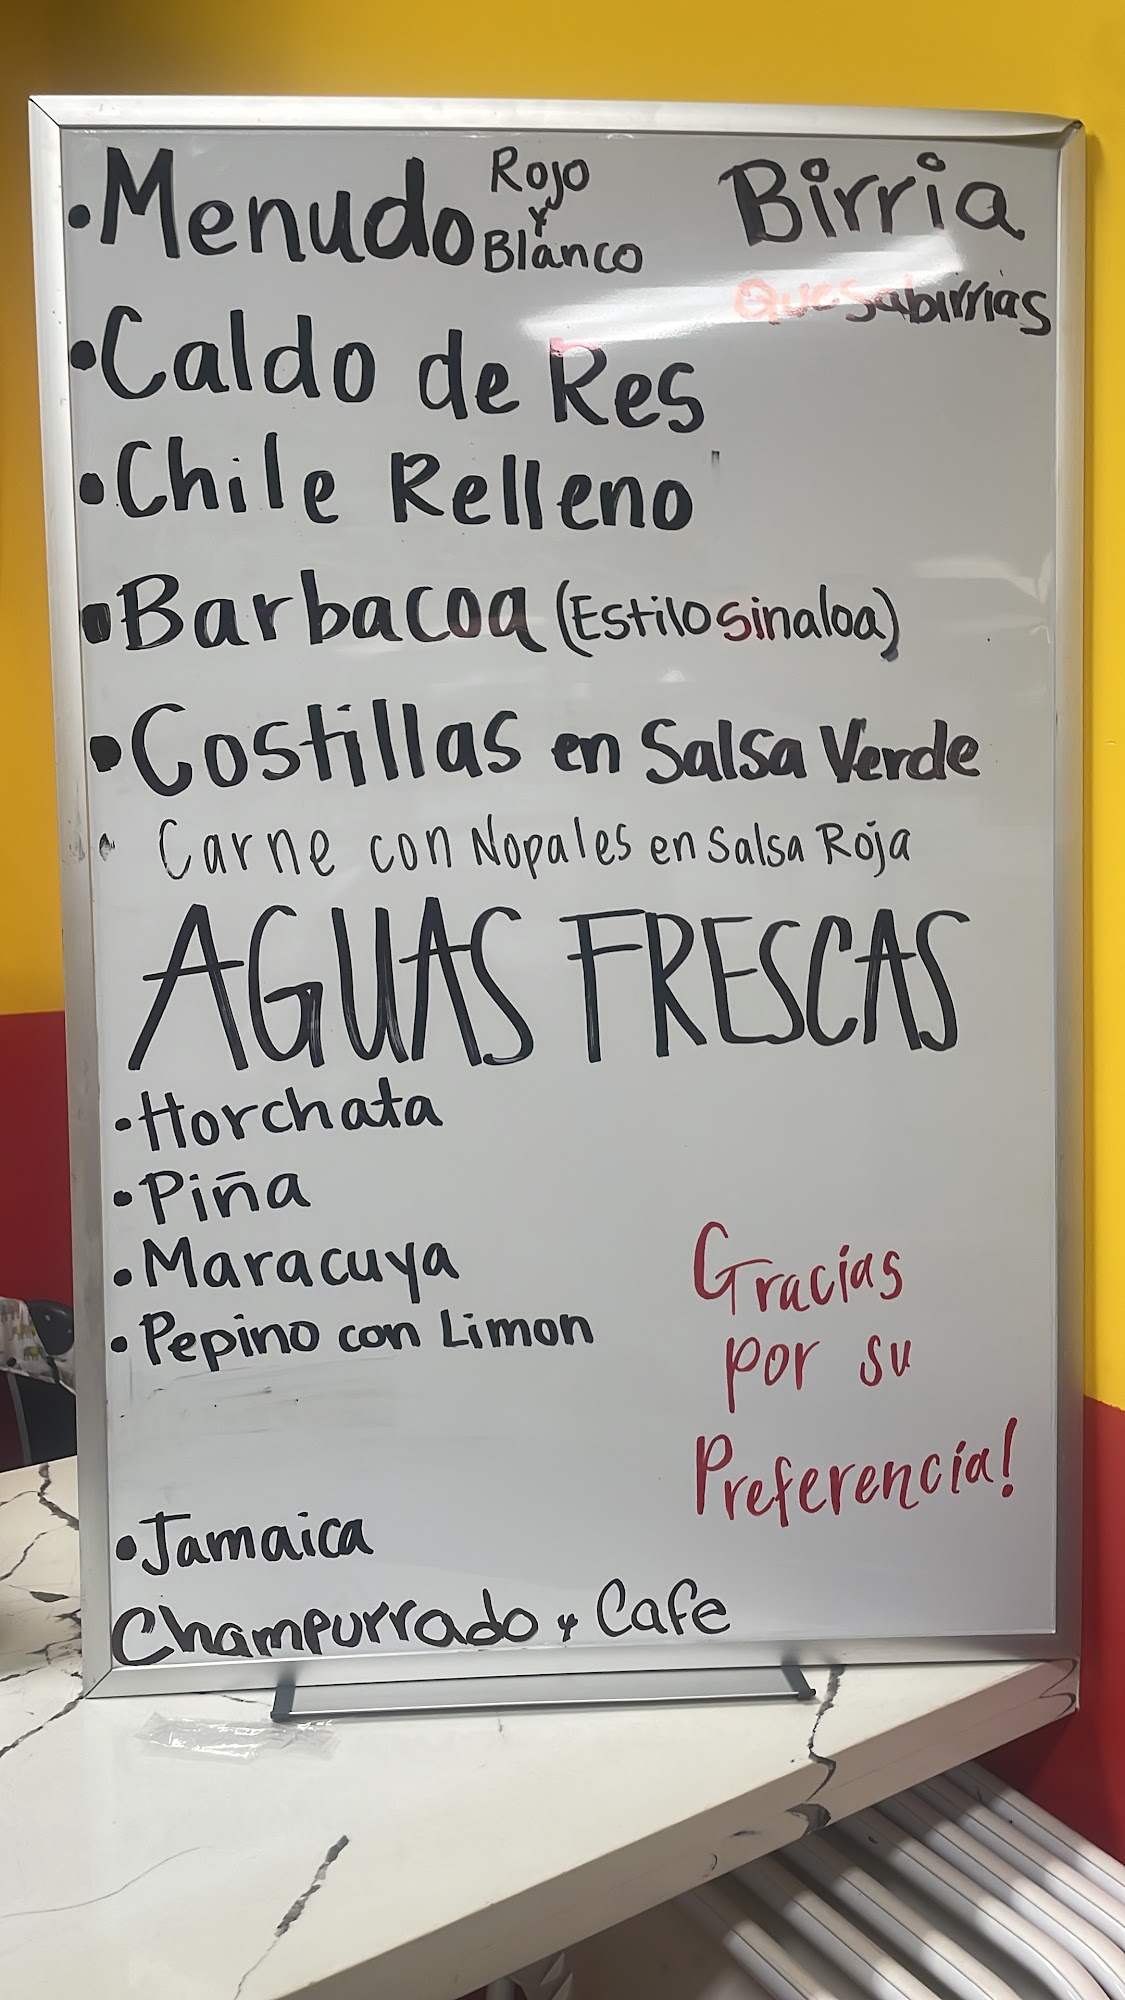 •Menudo Rojo y Blanco
Birria
Quesabirrias
•Caldo de Res
•Chile Relleno
•Barbacoa (Estilo Sinaloa)
•Costillas en Salsa Verde
• Carne con Nopales en Salsa Roja
AGUAS FRESCAS
•Horchata
•Piña
•Maracuya
•Pepino con Limon
Gracias
por su
Preferencia!
•Jamaica
Champurrado y Cafe